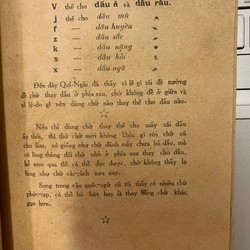 V thế cho dấu ă và dấu râu.
j thế cho dấu mũ ^
f — dấu huyền `
z — dấu sắc ´
k — dấu nặng .
s — dấu hỏi ?
x — dấu ngã ~
Đến đây Quí-Ngài đã thấy vì lẽ gì tôi đề xướng
để chữ thay dấu ở phía sau, chớ không để ở giữa và
vì lý-do gì nên dùng chữ nào thay thế cho dấu nào.
Nếu chỉ dùng chữ thay thế cho mấy cái dấu
ấy thôi, thì chữ mới không khác gì với chữ cũ
cho lắm, nó giống như chữ đánh máy chưa bỏ dấu, mà
có lòng thòng đôi chữ nhỏ ở phía sau thay cho dấu,
xem qua thì có thể đọc được, chớ không thấy lạ
lùng như chữ cải-cách xưa nay.
Song trong vần quốc-ngữ cũ tôi thấy có nhiều chữ
phức-tạp, có thể bỏ bớt hay là thay bằng chữ khác
gọn hơn.